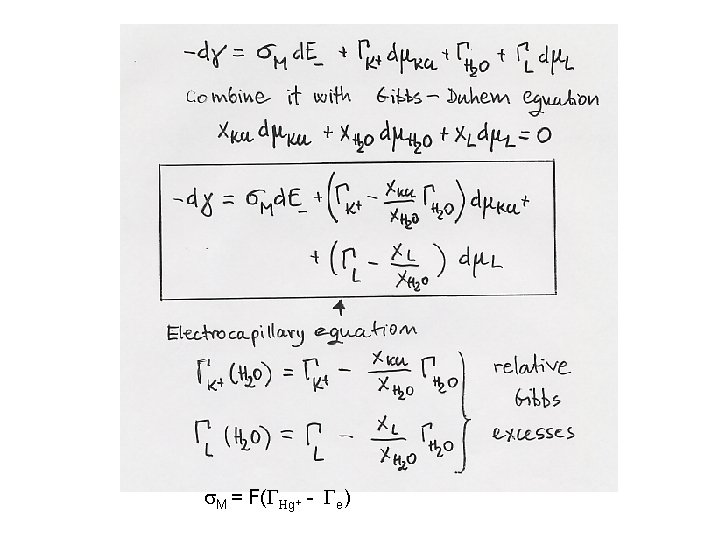 -dγ = σ_M dE_- + Γ_K+ dμ_KCl + Γ_H2O + Γ_L dμ_L
Combine it with Gibbs - Duhem equation
x_KCl dμ_KCl + x_H2O dμ_H2O + x_L dμ_L = 0
-dγ = σ_M dE_- + (Γ_K+ - x_KCl/x_H2O Γ_H2O) dμ_KCl +
+ (Γ_L - x_L/x_H2O) dμ_L
Electrocapillary equation
Γ_K+ (H2O) = Γ_K+ - x_KCl/x_H2O Γ_H2O
Γ_L (H2O) = Γ_L - x_L/x_H2O Γ_H2O
relative
Gibbs
excesses
σM = F(ΓHg+ - Γe)